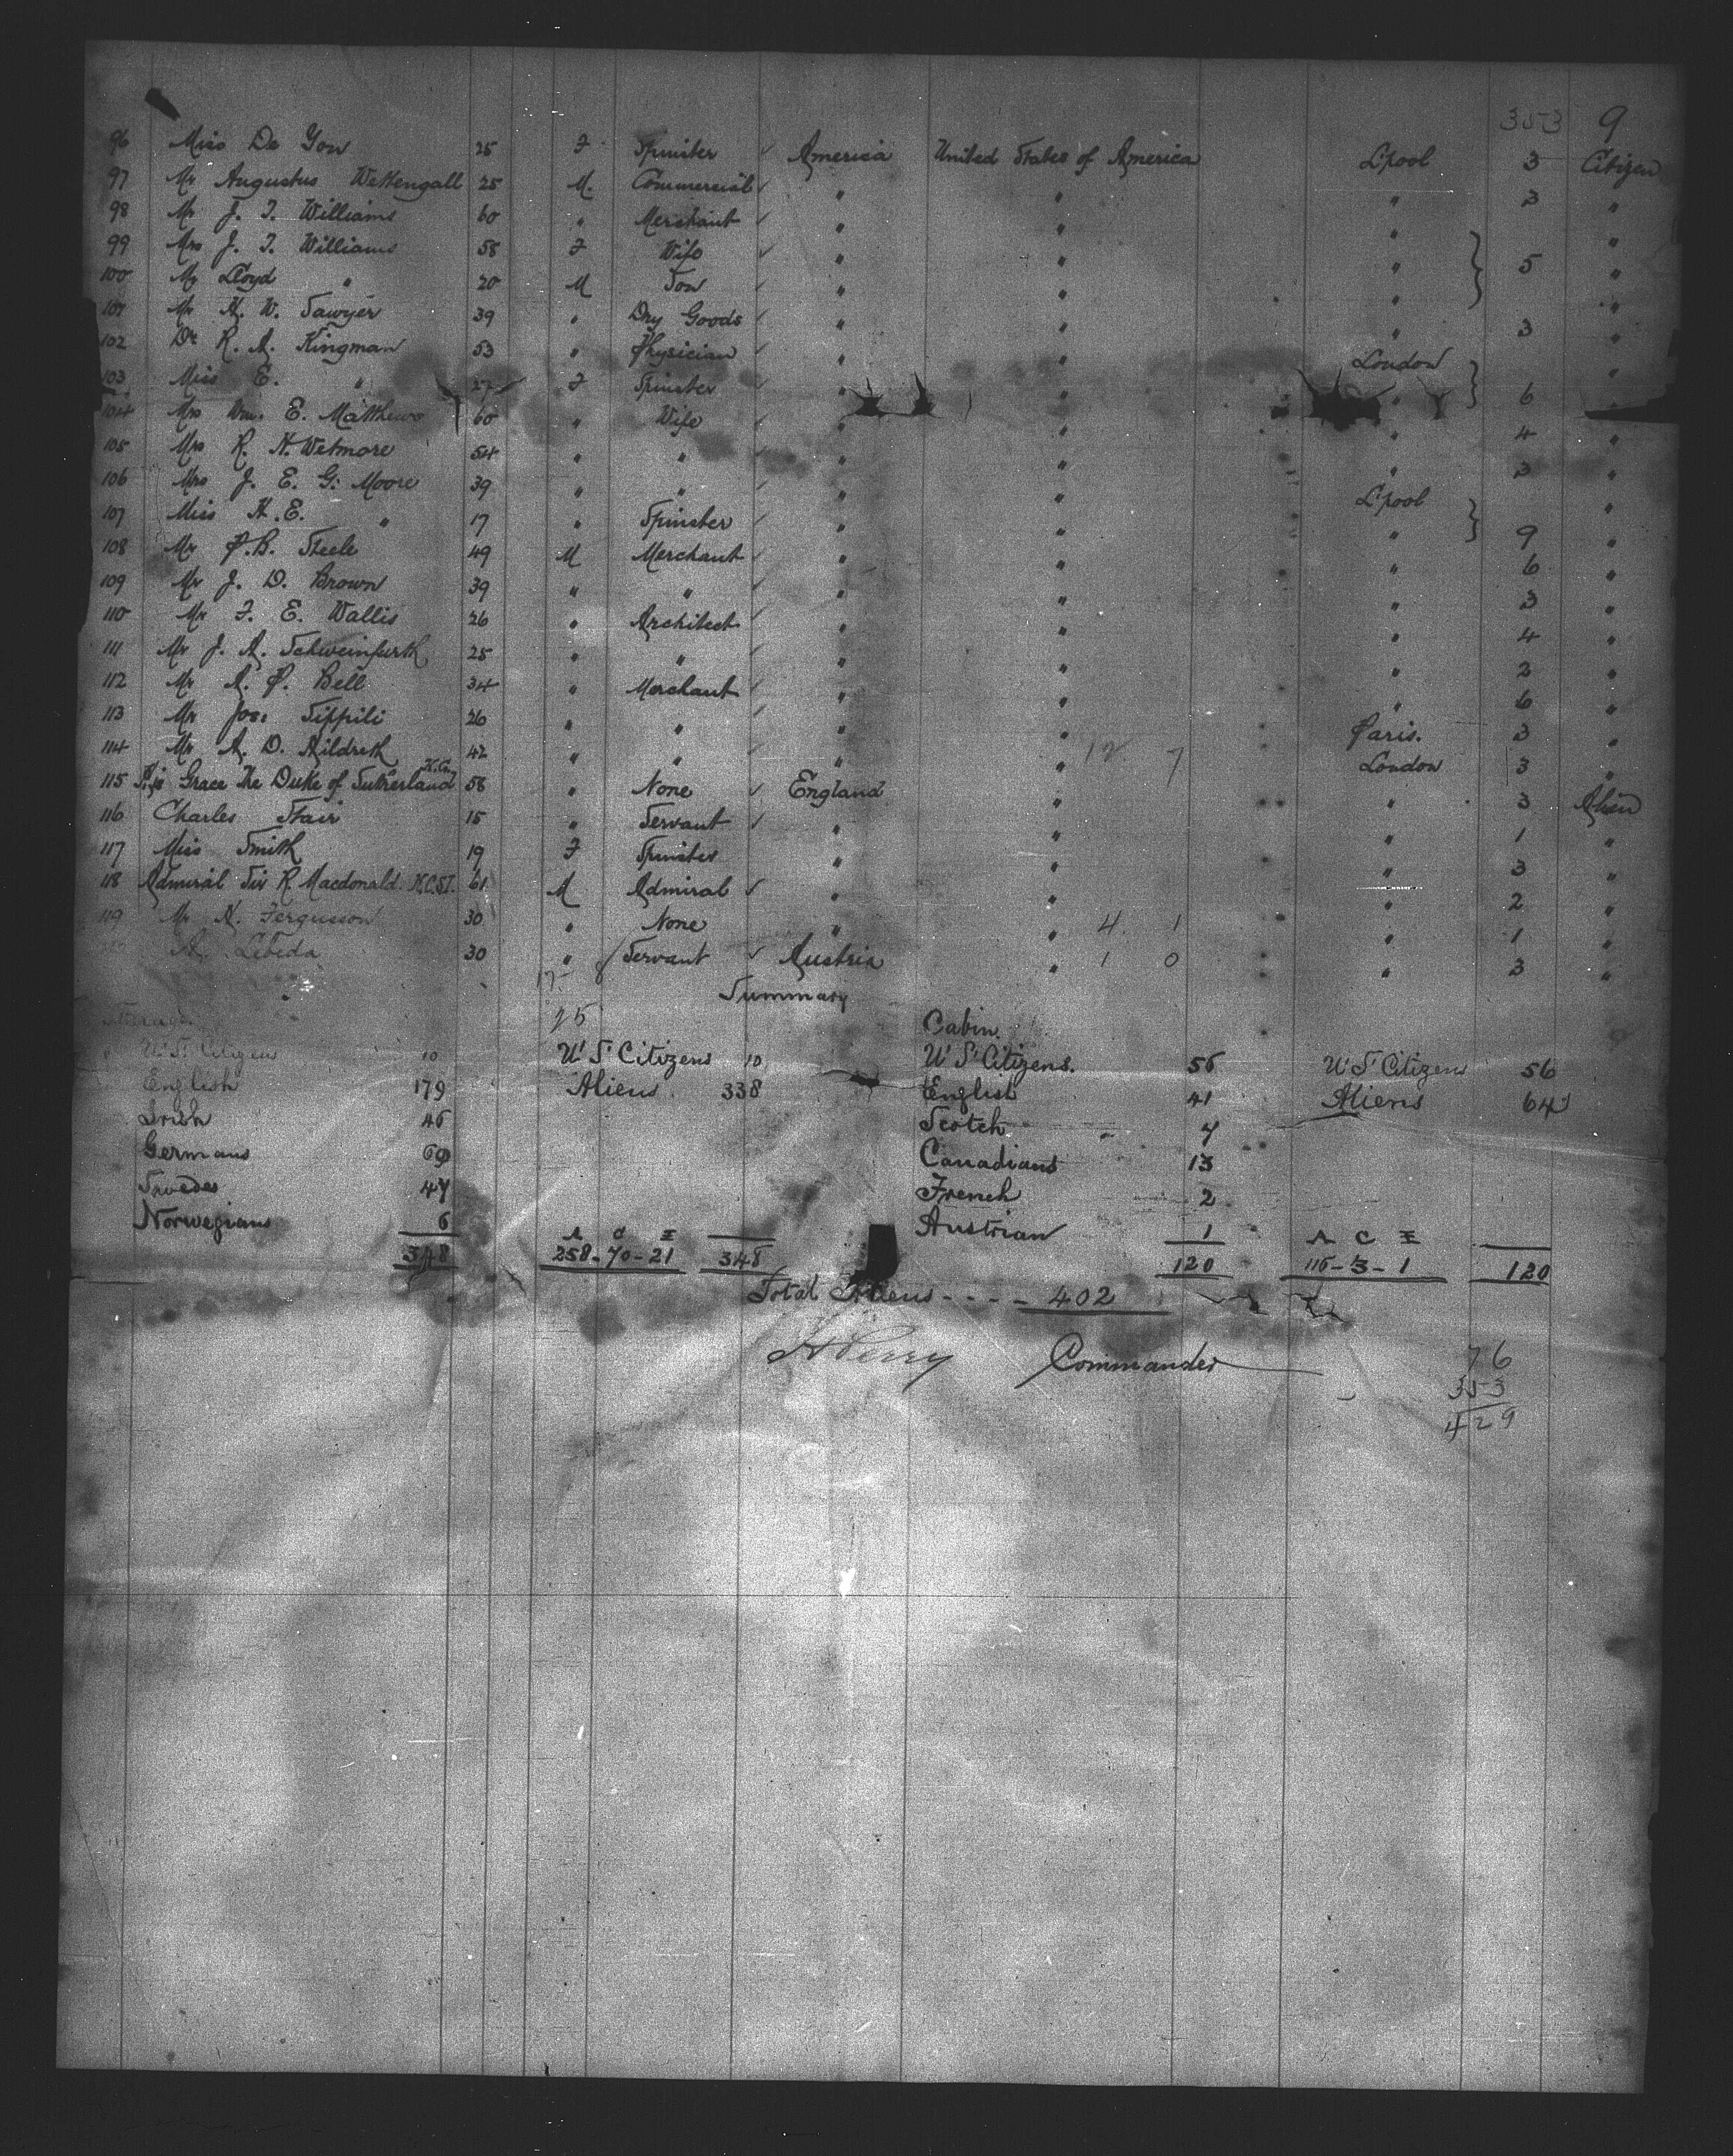 353 9
96 Miss De Yow 25 F Spinster ✓ America United States of America L'pool 3 Citizen
97 Mr Augustus Wettengall 25 M. Commercial ✓ " " " 3 "
98 Mr J. T. Williams 60 " Merchant ✓ " " " "
99 Mrs J. T. Williams 58 F Wife ✓ " " " 5 "
100 Mr Lloyd " 20 M Son ✓ " " " "
101 Mr H. W. Sawyer 39 " Dry Goods ✓ " " " 3 "
102 Dr R. A. Kingman 53 " Physician ✓ " " London "
103 Miss E. " 27 F Spinster ✓ " " " 6 "
104 Mrs Wm. E. Matthews 60 " Wife ✓ " " " 4 "
105 Mrs R. H. Wetmore 54 " " ✓ " " " 3 "
106 Mrs J. E. G. Moore 39 " " ✓ " " L'pool "
107 Miss H. E. " 17 " Spinster ✓ " " " 9 "
108 Mr P. B. Steele 49 M Merchant ✓ " " " 6 "
109 Mr J. D. Brown 39 " " ✓ " " " 3 "
110 Mr F. E. Wallis 26 " Architect ✓ " " " 4 "
111 Mr J. A. Schweinfurth 25 " " ✓ " " " 2 "
112 Mr A. P. Bell 34 " Merchant ✓ " " " 6 "
113 Mr Jos. Tippili 26 " " ✓ " " Paris. 3 "
114 Mr A. D. Hildreth 42 " " ✓ " " 12 7 London 3 "
115 His Grace the Duke of Sutherland K.G. 58 " None ✓ England " " 3 Alien
116 Charles Stair 15 " Servant ✓ " " " 1 "
117 Miss Smith 19 F Spinster " " " 3 "
118 Admiral Sir R. Macdonald. K.C.S.I. 61 M Admiral ✓ " " " 2 "
119 Mr H. Fergusson 30 " None " " 4 1 " 1 "
A. Lebeda 30 " Servant ✓ Austria " 1 0 " 3 "
Summary
25 Cabin
U.S. Citizens 10 U.S. Citizens 10 U.S. Citizens. 56 U.S. Citizens 56
English 179 Aliens 338 English 41 Aliens 64
Irish 46 Scotch 7
Germans 60 Canadians 13
Swedes 47 French 2
Norwegians 6 A C I Austrian 1 A C I
348 258-70-21 348 120 116-3-1 120
Total Aliens - - - - 402
H Perry Commander
76
353
429